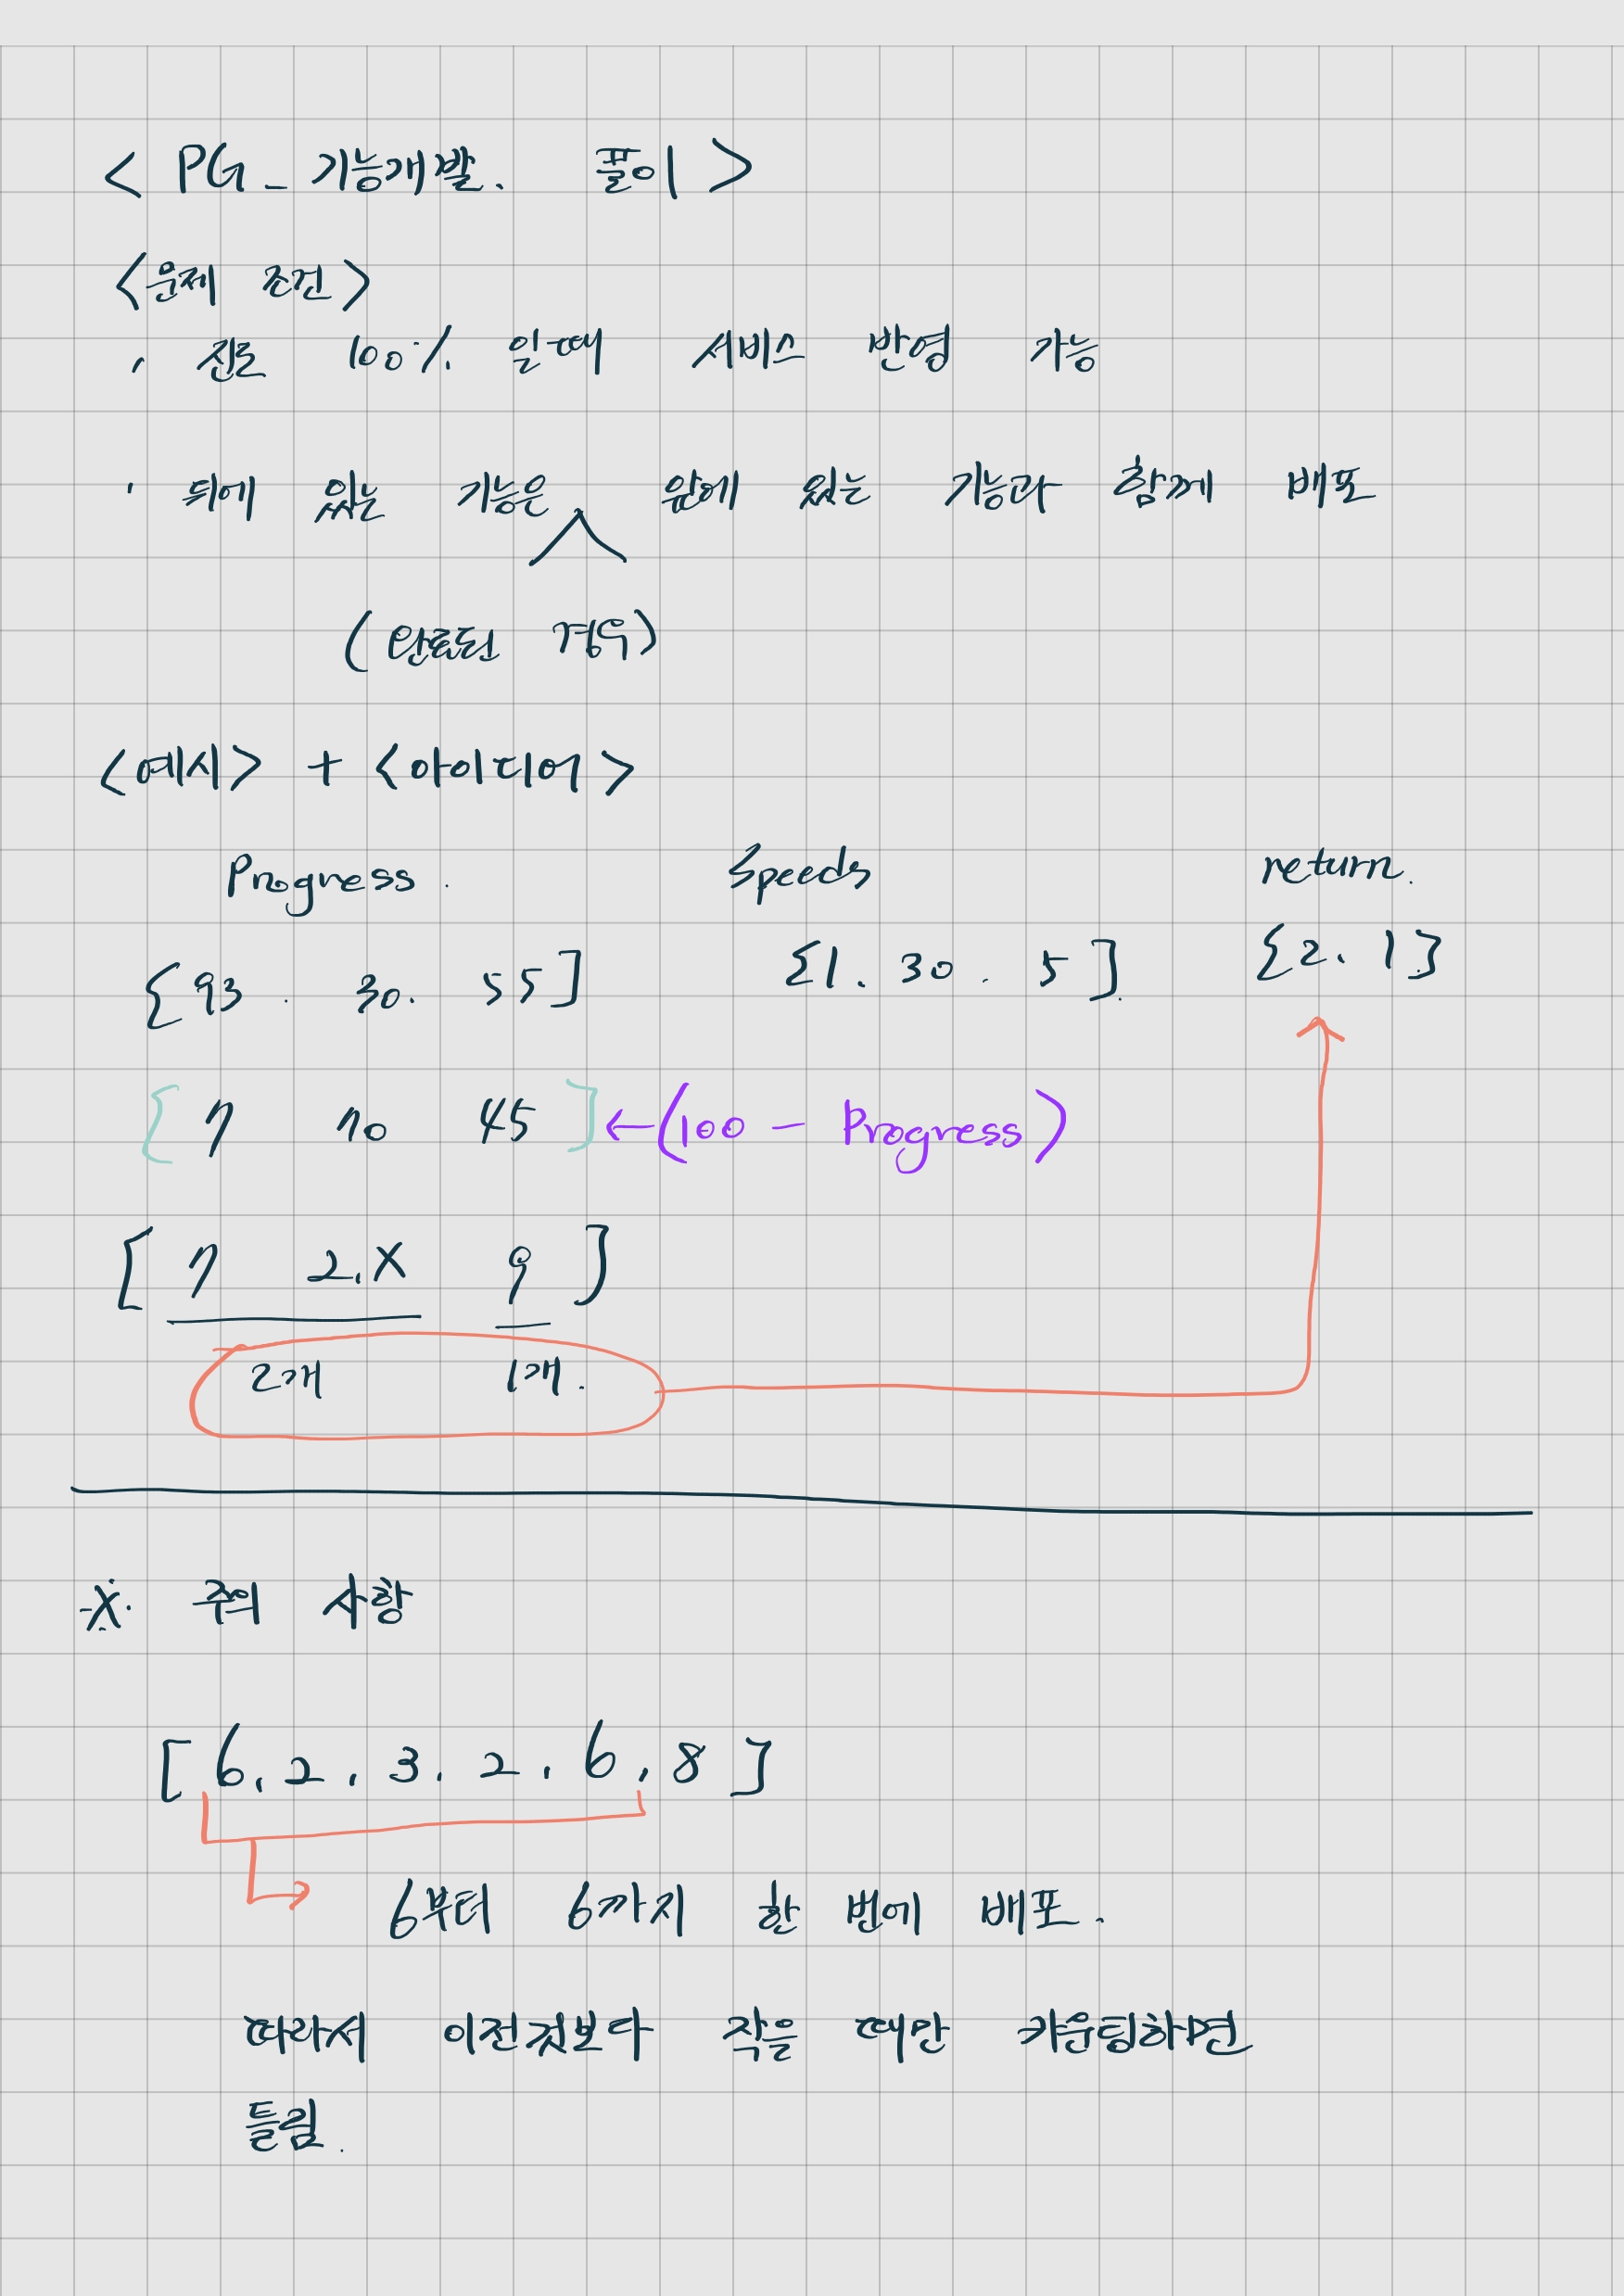 < PG_기능개발. 풀이 >
<문제 조건>
· 진도 100% 일때 서비스 반영 가능
· 뒤에 있는 기능은 앞에 있는 기능과 함께 배포
(완료된 경우)
<예시> + <아이디어>
Progress. Speeds return.
[93. 30. 55] [1. 30. 5] [2. 1]
[7 70 45] ←(100 - Progress)
[7 2.X 9]
2개 1개.
※ 주의 사항
[6, 2, 3, 2, 6, 8]
6부터 6까지 한 번에 배포.
따라서 이전것보다 작을 때만 카운팅하면
틀림.